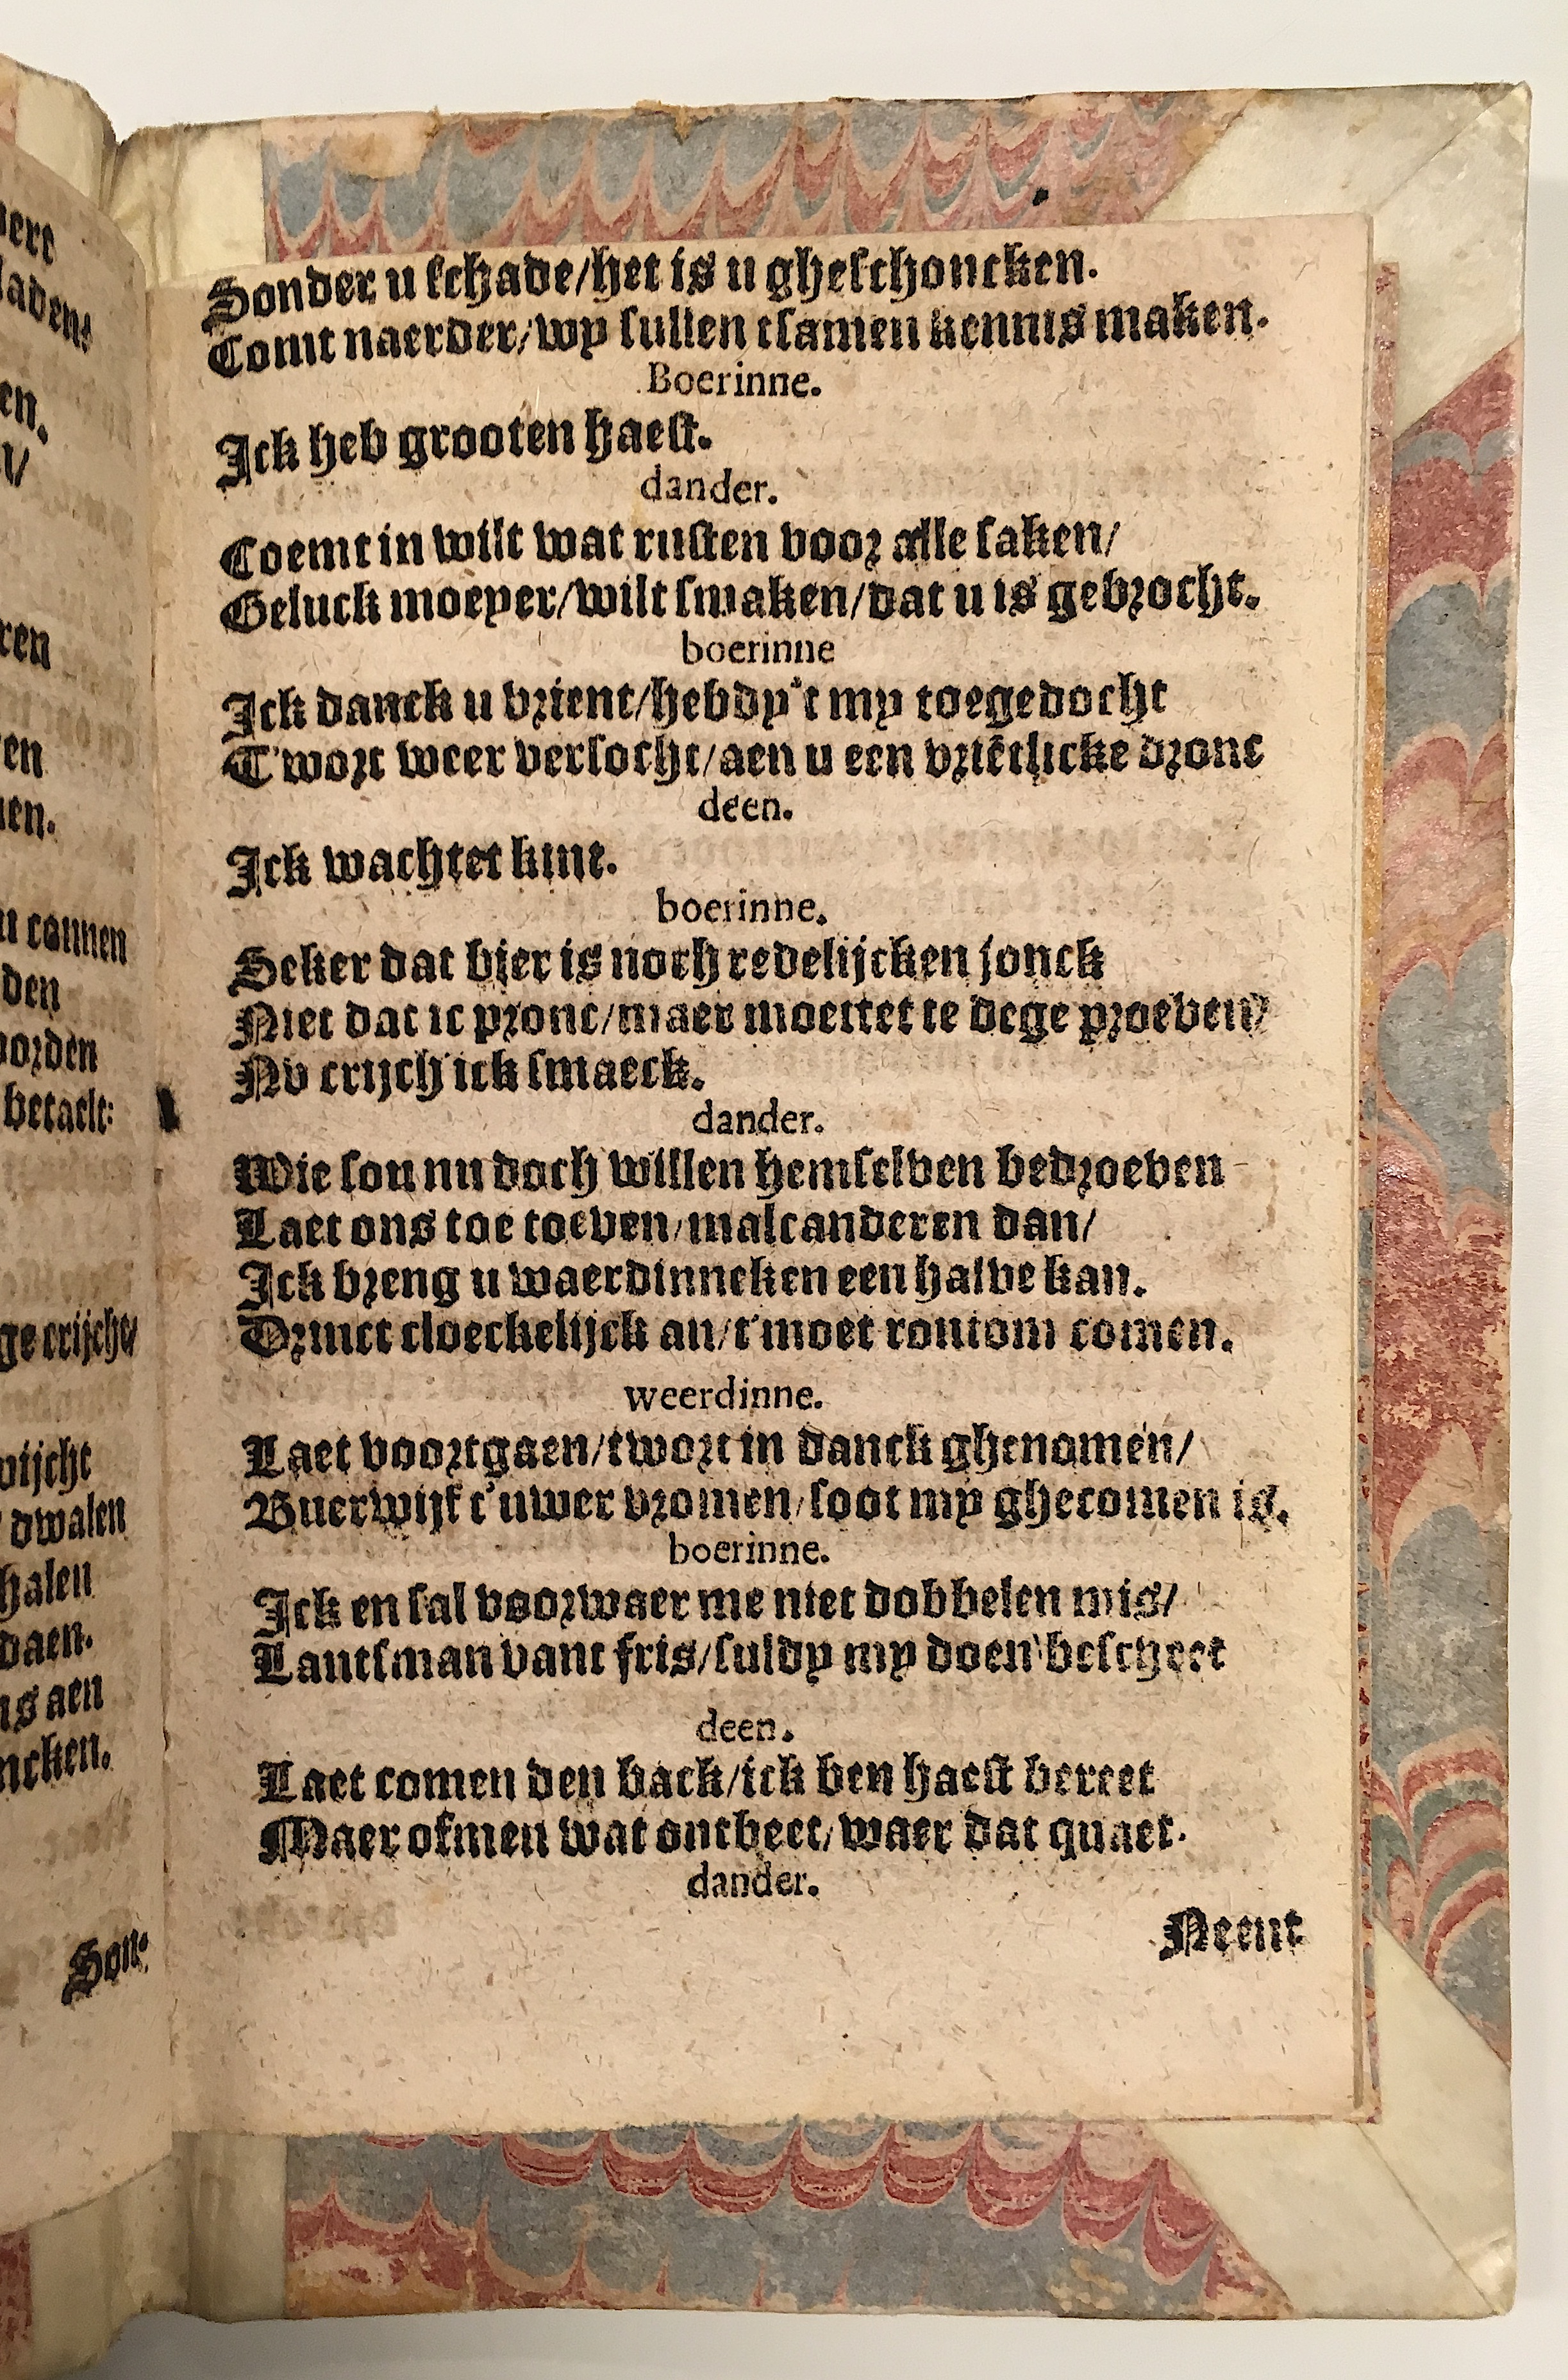 Sonder u schade/het is u gheschoncken.
Comt naerder/wy sullen tsamen kennis maken.
Boerinne.
Ick heb grooten haest.
dander.
Coemt in wilt wat rusten voor alle saken/
Geluck moeyer/wilt smaken/dat u is gebrocht.
boerinne
Ick danck u vrient/hebdy't my toegedocht
T'wort weer versocht/aen u een vriẽtlicke dronc
deen.
Ick wachtet kint.
boerinne.
Seker dat bier is noch redelijcken jonck
Niet dat ic pronc/maer moettet te dege proeven/
Nv crijch ick smaeck.
dander.
Wie sou nu doch willen hemselven bedroeven
Laet ons toe toeven/malcanderen dan/
Ick breng u waerdinneken een halve kan.
Drinct cloeckelijck an/t'moet rontom comen.
weerdinne.
Laet voortgaen/twort in danck ghenomen/
Buerwijf t'uwer vromen/soot my ghecomen is.
boerinne.
Ick en sal voorwaer me niet dobbelen mis/
Lantsman vant fris/suldy my doen bescheet
deen.
Laet comen den back/ick ben haest bereet
Maer ofmen wat ontbeet/waer dat quaet.
dander.
Neent
nere
laden:
en.
ren
en
nen.
u connen
den
oorden
betaelt:
ge crijcht/
dwalen
halen
daen.
ns aen
ncken.
Son: